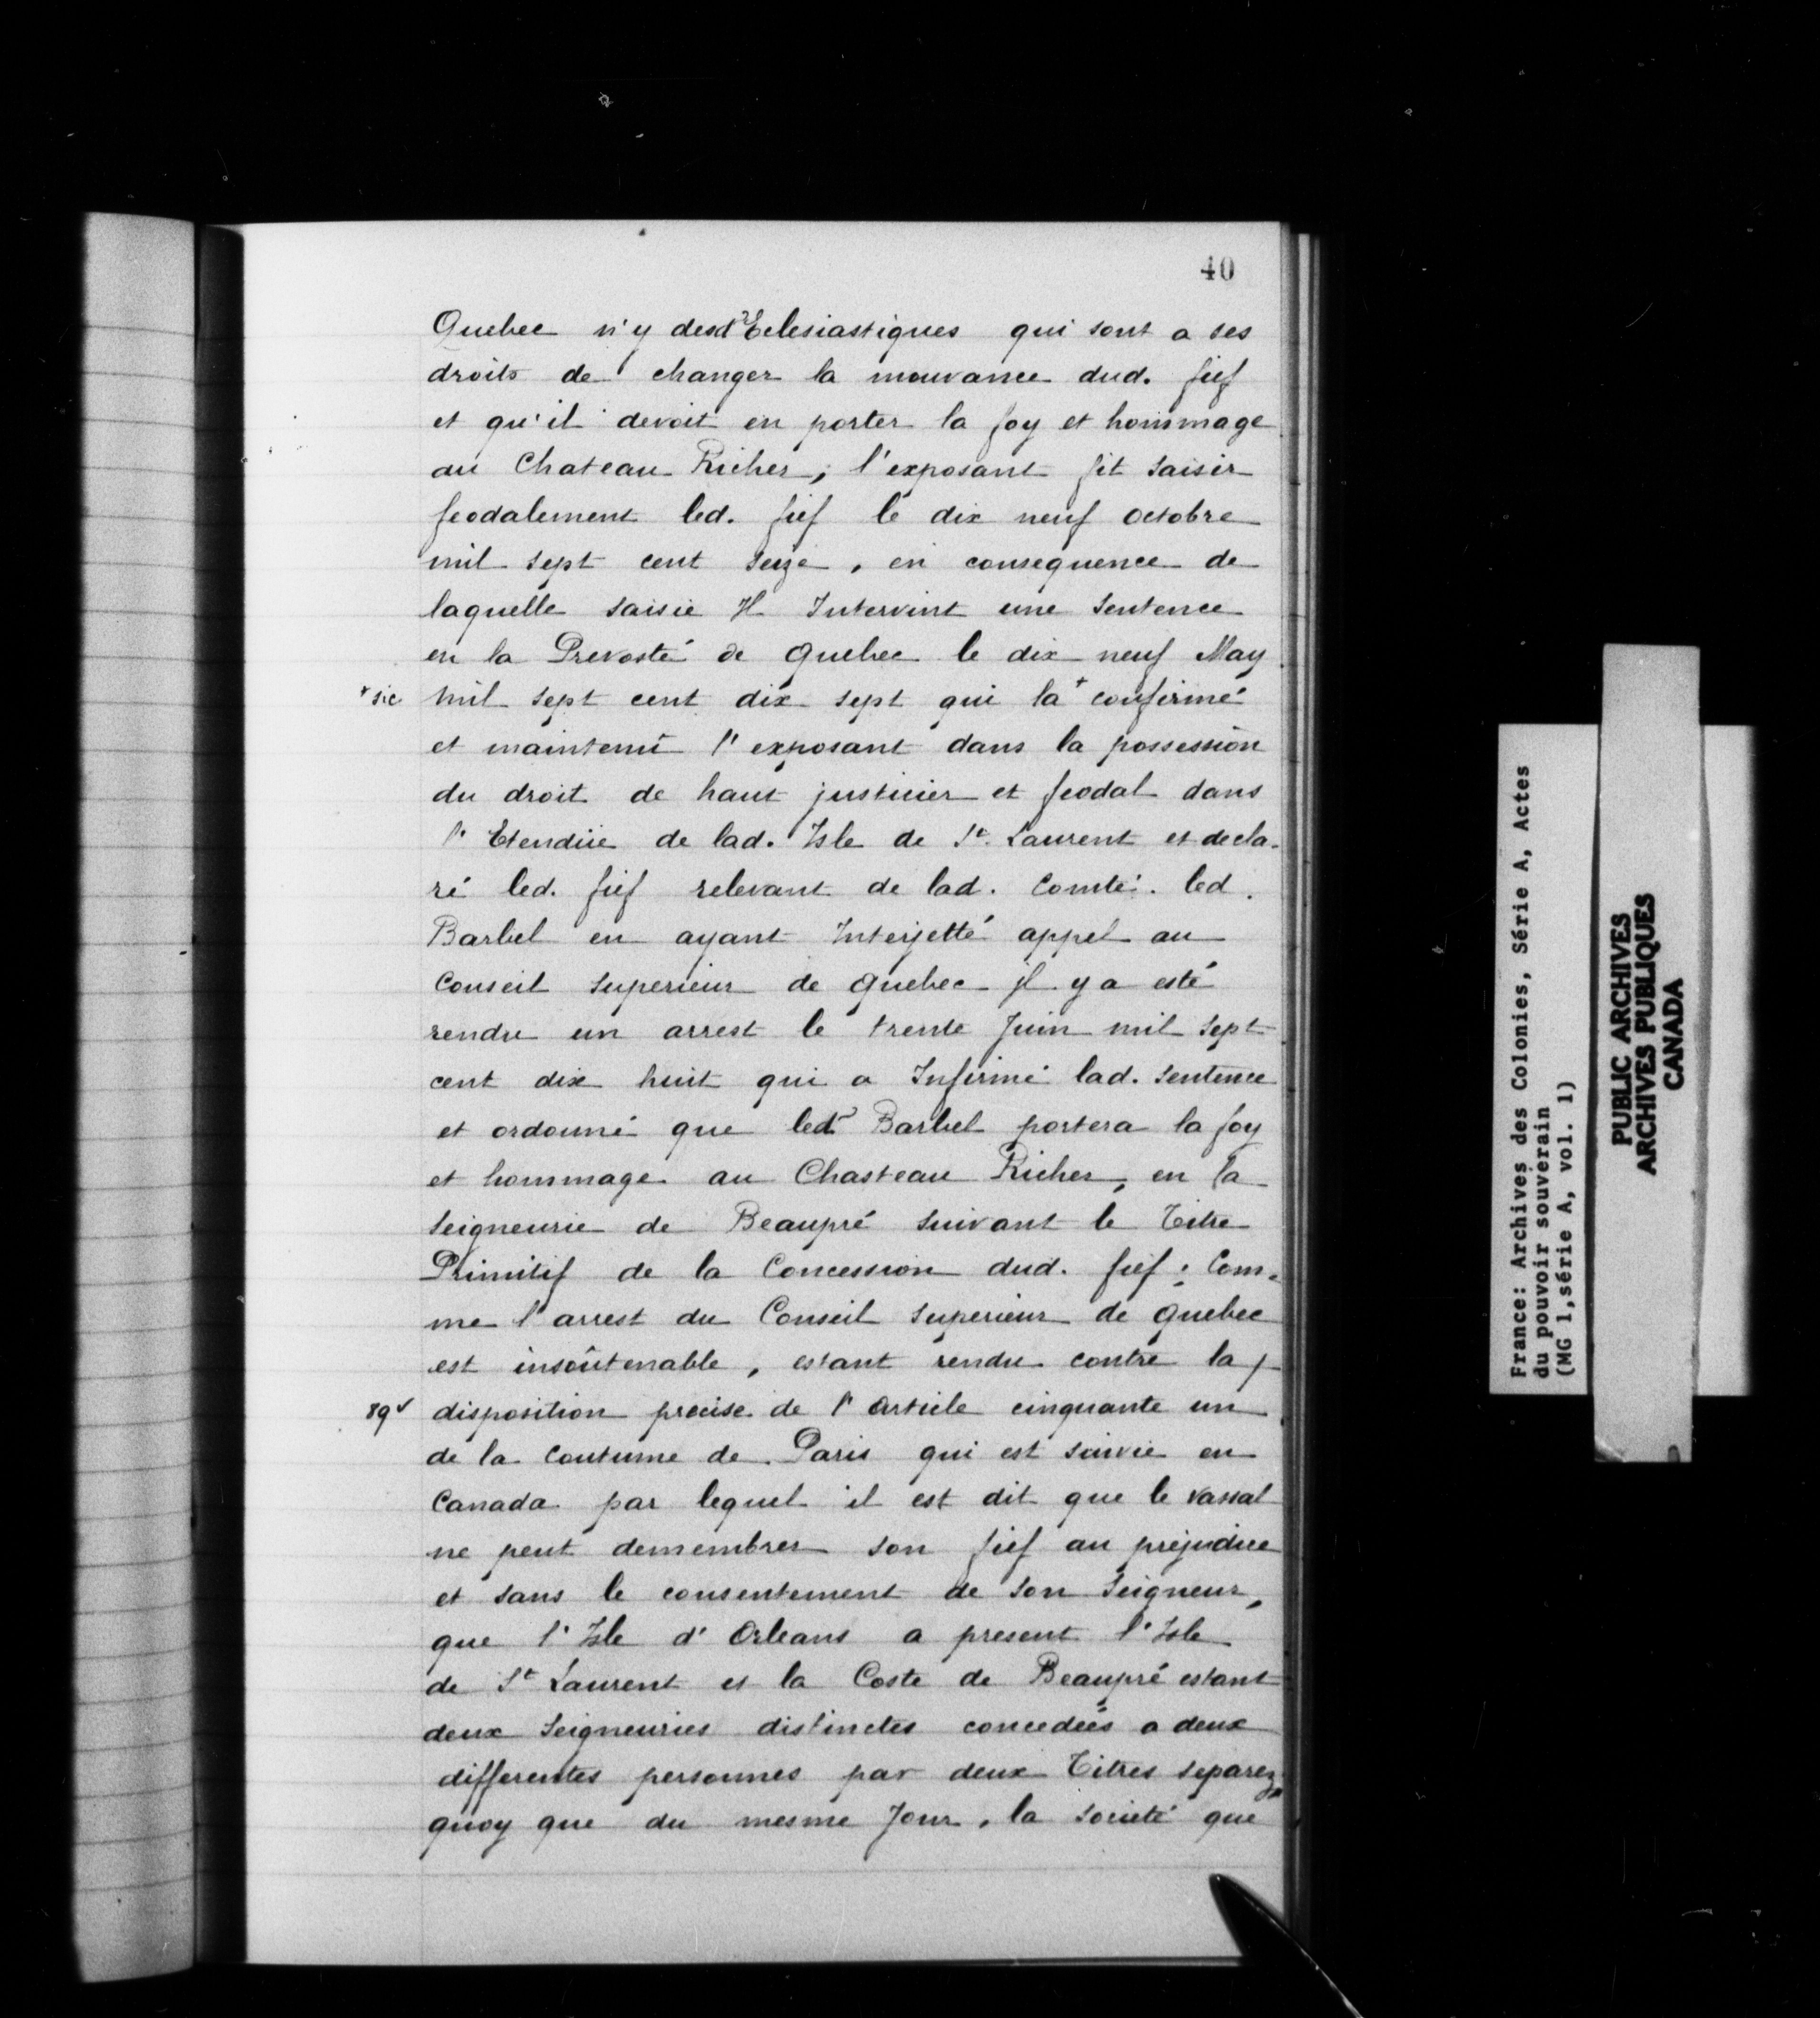 40
Quebec n'y desd.s Eclesiastiques qui sont a ses
droits de changer la mouvance dud. fief
et qu'il devoit en porter la foy et hommage
au Chateau Richer, l'exposant fit saisir
feodalement led. fief le dix neuf octobre
mil sept cent seize, en consequence de
laquelle saisie Il Intervint une Sentence
en la Prevosté de Quebec le dix neuf May
+ sic
mil sept cent dix sept qui la + confirmé
et maintenû l'exposant dans la possession
du droit de haut justicier et feodal dans
l'Etendüe de lad. Isle de St. Laurent et decla-
ré led. fief relevant de lad. Comté. led.
Barbel en ayant Interjetté appel au
Conseil Superieur de Quebec jl y a esté
rendu un arrest le trente Juin mil Sept
cent dix huit qui a Infirmé lad. Sentence
et ordonné que led. Barbel portera la foy
et hommage au Chasteau Richer, en la
Seigneurie de Beaupré suivant le Titre
Primitif de la Concession dud. fief; Com-
me l'arrest du Conseil Superieur de Quebec
est insoûtenable, estant rendu contre la /
89v
disposition precise de l'article cinquante un
de la Coutume de Paris qui est suivie en
Canada par lequel il est dit que le Vassal
ne peut demembrer son fief au prejudice
et sans le consentement de Son Seigneur,
que l'Isle d'Orleans a present l'Isle
de St Laurent et la Coste de Beaupré estant
deux Seigneuries distinctes concedées a deux
differentes personnes par deux Titres separez,
quoy que du mesme Jour, la societé que
France: Archives des Colonies, Série A, Actes
du pouvoir souverain
(MG 1,série A, vol. 1)
PUBLIC ARCHIVES
ARCHIVES PUBLIQUES
CANADA